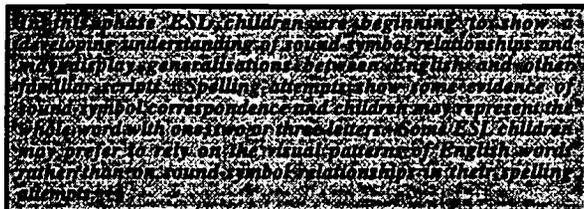 In this phase, ESL children are beginning to show a
developing understanding of sound-symbol relationships and
may display generalisations between English and other
familiar scripts. Spelling attempts show some evidence of
sound-symbol correspondence and children may represent the
whole word with one, two or three letters. Some ESL children
may prefer to rely on the visual patterns of English words
rather than on sound-symbol relationships in their spelling
attempts.